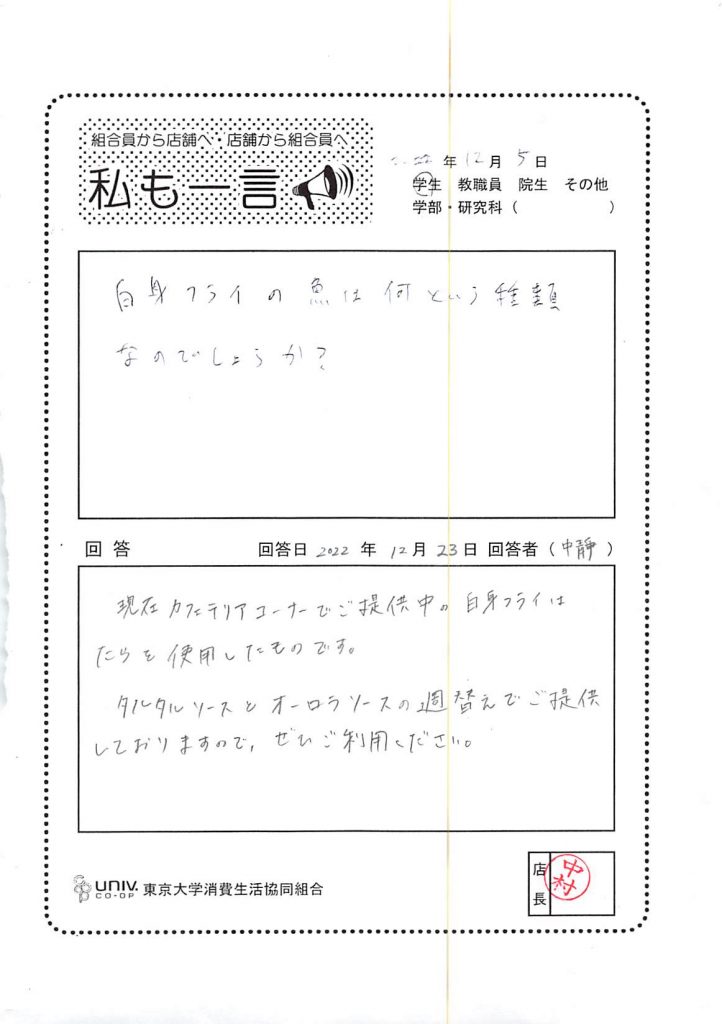 組合員から店舗へ・店舗から組合員へ
私も一言
2022 年 12 月 5 日
学生 教職員 院生 その他
学部・研究科（ ）
白身フライの魚は何という種類
なのでしょうか?
回 答 回答日 2022 年 12 月 23 日 回答者（中靜）
現在カフェテリアコーナーでご提供中の白身フライは
たらを使用したものです。
タルタルソースとオーロラソースの週替えでご提供
しておりますので、ぜひご利用ください。
CO-OP UNIV. CO-OP 東京大学消費生活協同組合
店長 中村